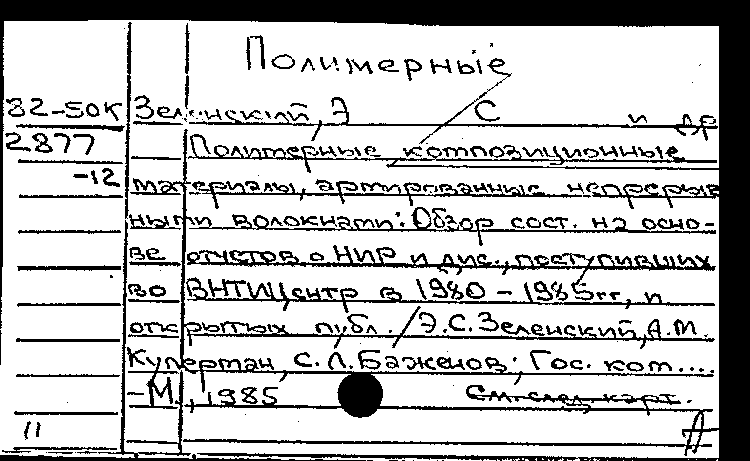 Полимерные
82-50К Зеленский, Э С и др
2877 Полимерные композиционные
-12 материалы, армированные непрерыв
ными волокнами: Обзор сост. на осно-
ве отчетов о НИР и дис., поступивших
во ВНТИЦентр в 1980-1985гг, и
открытых публ. / Э.С.Зеленский, А.М.
Куперман, С.Л.Баженов; Гос. ком....
-М., 1985 См.след.карт.
11